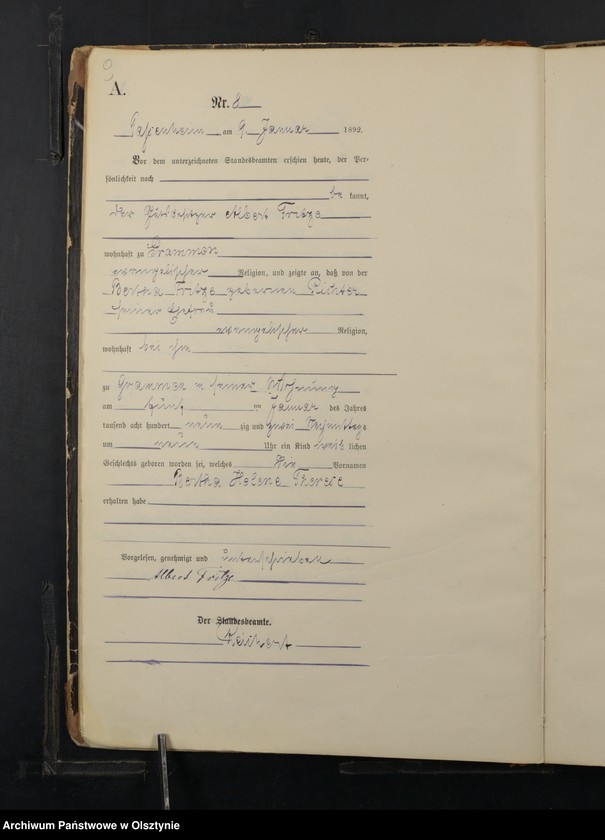 9
A.
Nr. 8
am 9. Januar 1892.
Vor dem unterzeichneten Standesbeamten erschien heute, der Per-
sönlichkeit nach
be kannt,
der Gutsbesitzer Albert Fritze
wohnhaft zu Grammen
evangelischer Religion, und zeigte an, daß von der
Bertha Fritze geborenen Richter
seiner Ehefrau
evangelischer Religion,
wohnhaft bei ihm
zu Grammen in seiner Wohnung
am fünf ten Januar des Jahres
tausend acht hundert neun zig und zwei Nachmittags
um neun Uhr ein Kind weib lichen
Geschlechts geboren worden sei, welches die Vornamen
Bertha Helene Therese
erhalten habe
Vorgelesen, genehmigt und unterschrieben
Albert Fritze
Der Standesbeamte.
Archiwum Państwowe w Olsztynie